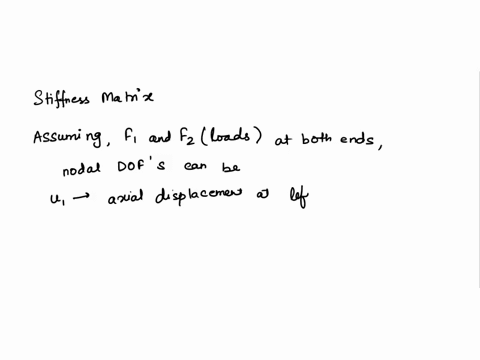 Stiffness Matrix
Assuming, F1 and F2 (loads) at both ends,
nodal DOF's can be
u1 → axial displacement at lef